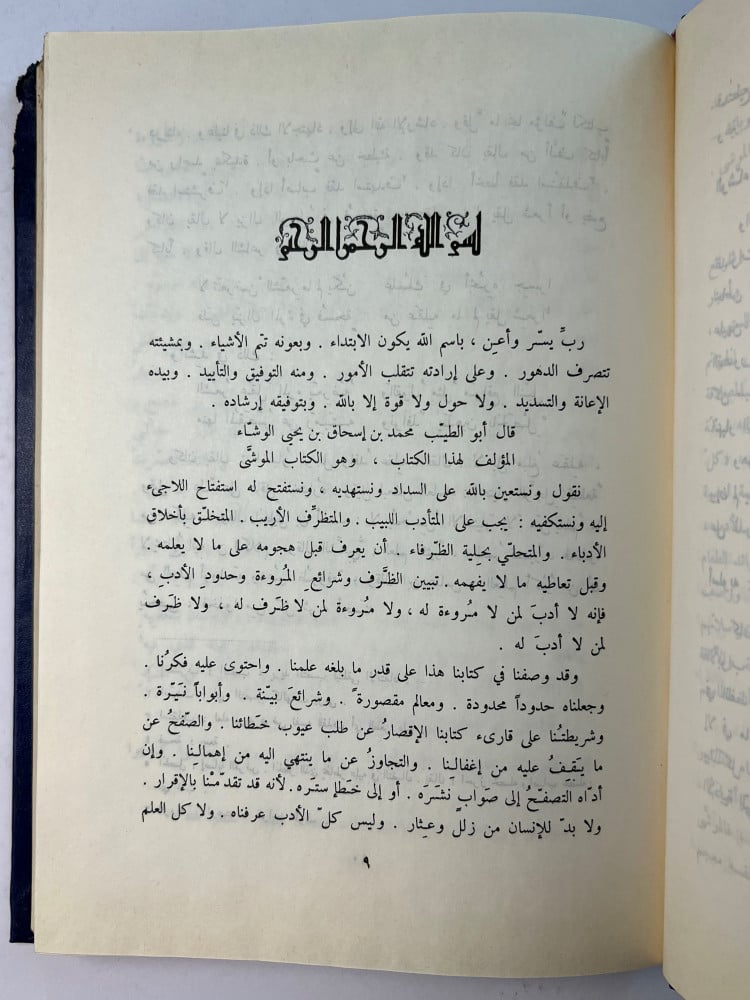 بسم الله الرحمن الرحيم
ربِّ يسّر وأعِن ، باسم الله يكون الابتداء . وبعونه تتم الأشياء . وبمشيئته
تتصرف الدهور . وعلى إرادته تتقلب الأمور . ومنه التوفيق والتأييد . وبيده
الإعانة والتسديد . ولا حول ولا قوة إلا بالله . وبتوفيقه إرشاده .
قال أبو الطيّب محمد بن إسحاق بن يحيى الوشّاء
المؤلف لهذا الكتاب ، وهو الكتاب الموشَّى
نقول ونستعين بالله على السداد ونستهديه ، ونستفتح له استفتاح اللاجىء
إليه ونستكفيه : يجب على المتأدب اللبيب . والمتظرِّف الأريب . المتخلّق بأخلاق
الأدباء . والمتحلّي بحِلية الظّرفاء . أن يعرف قبل هجومه على ما لا يعلمه .
وقبل تعاطيه ما لا يفهمه . تبيين الظَّرف وشرائع المُروءة وحدود الأدب ،
فإنه لا أدبَ لمن لا مُروءة له ، ولا مُروءة لمن لا ظَرف له ، ولا ظَرف
لمن لا أدبَ له .
وقد وصفنا في كتابنا هذا على قدر ما بلغه علمنا . واحتوى عليه فكرُنا .
وجعلناه حدوداً محدودة . ومعالم مقصورةً . وشرائعَ بيّنة . وأبواباً نَيّرة .
وشريطتُنا على قارىء كتابنا الإقصارُ عن طلب عيوب خَطائنا . والصّفحُ عن
ما يَقِفُ عليه من إغفالِنا . والتجاوزُ عن ما ينتهي اليه من إهمالِنا . وإن
أدّاه التصفّحُ إلى صَوابٍ نَشَرَه . أو إلى خَطإٍ ستَره . لأنه قد تقدّمْنا بالإقرار .
ولا بدّ للإنسان من زلل وعِثار . وليس كلّ الأدب عرفناه . ولا كل العلم
٩